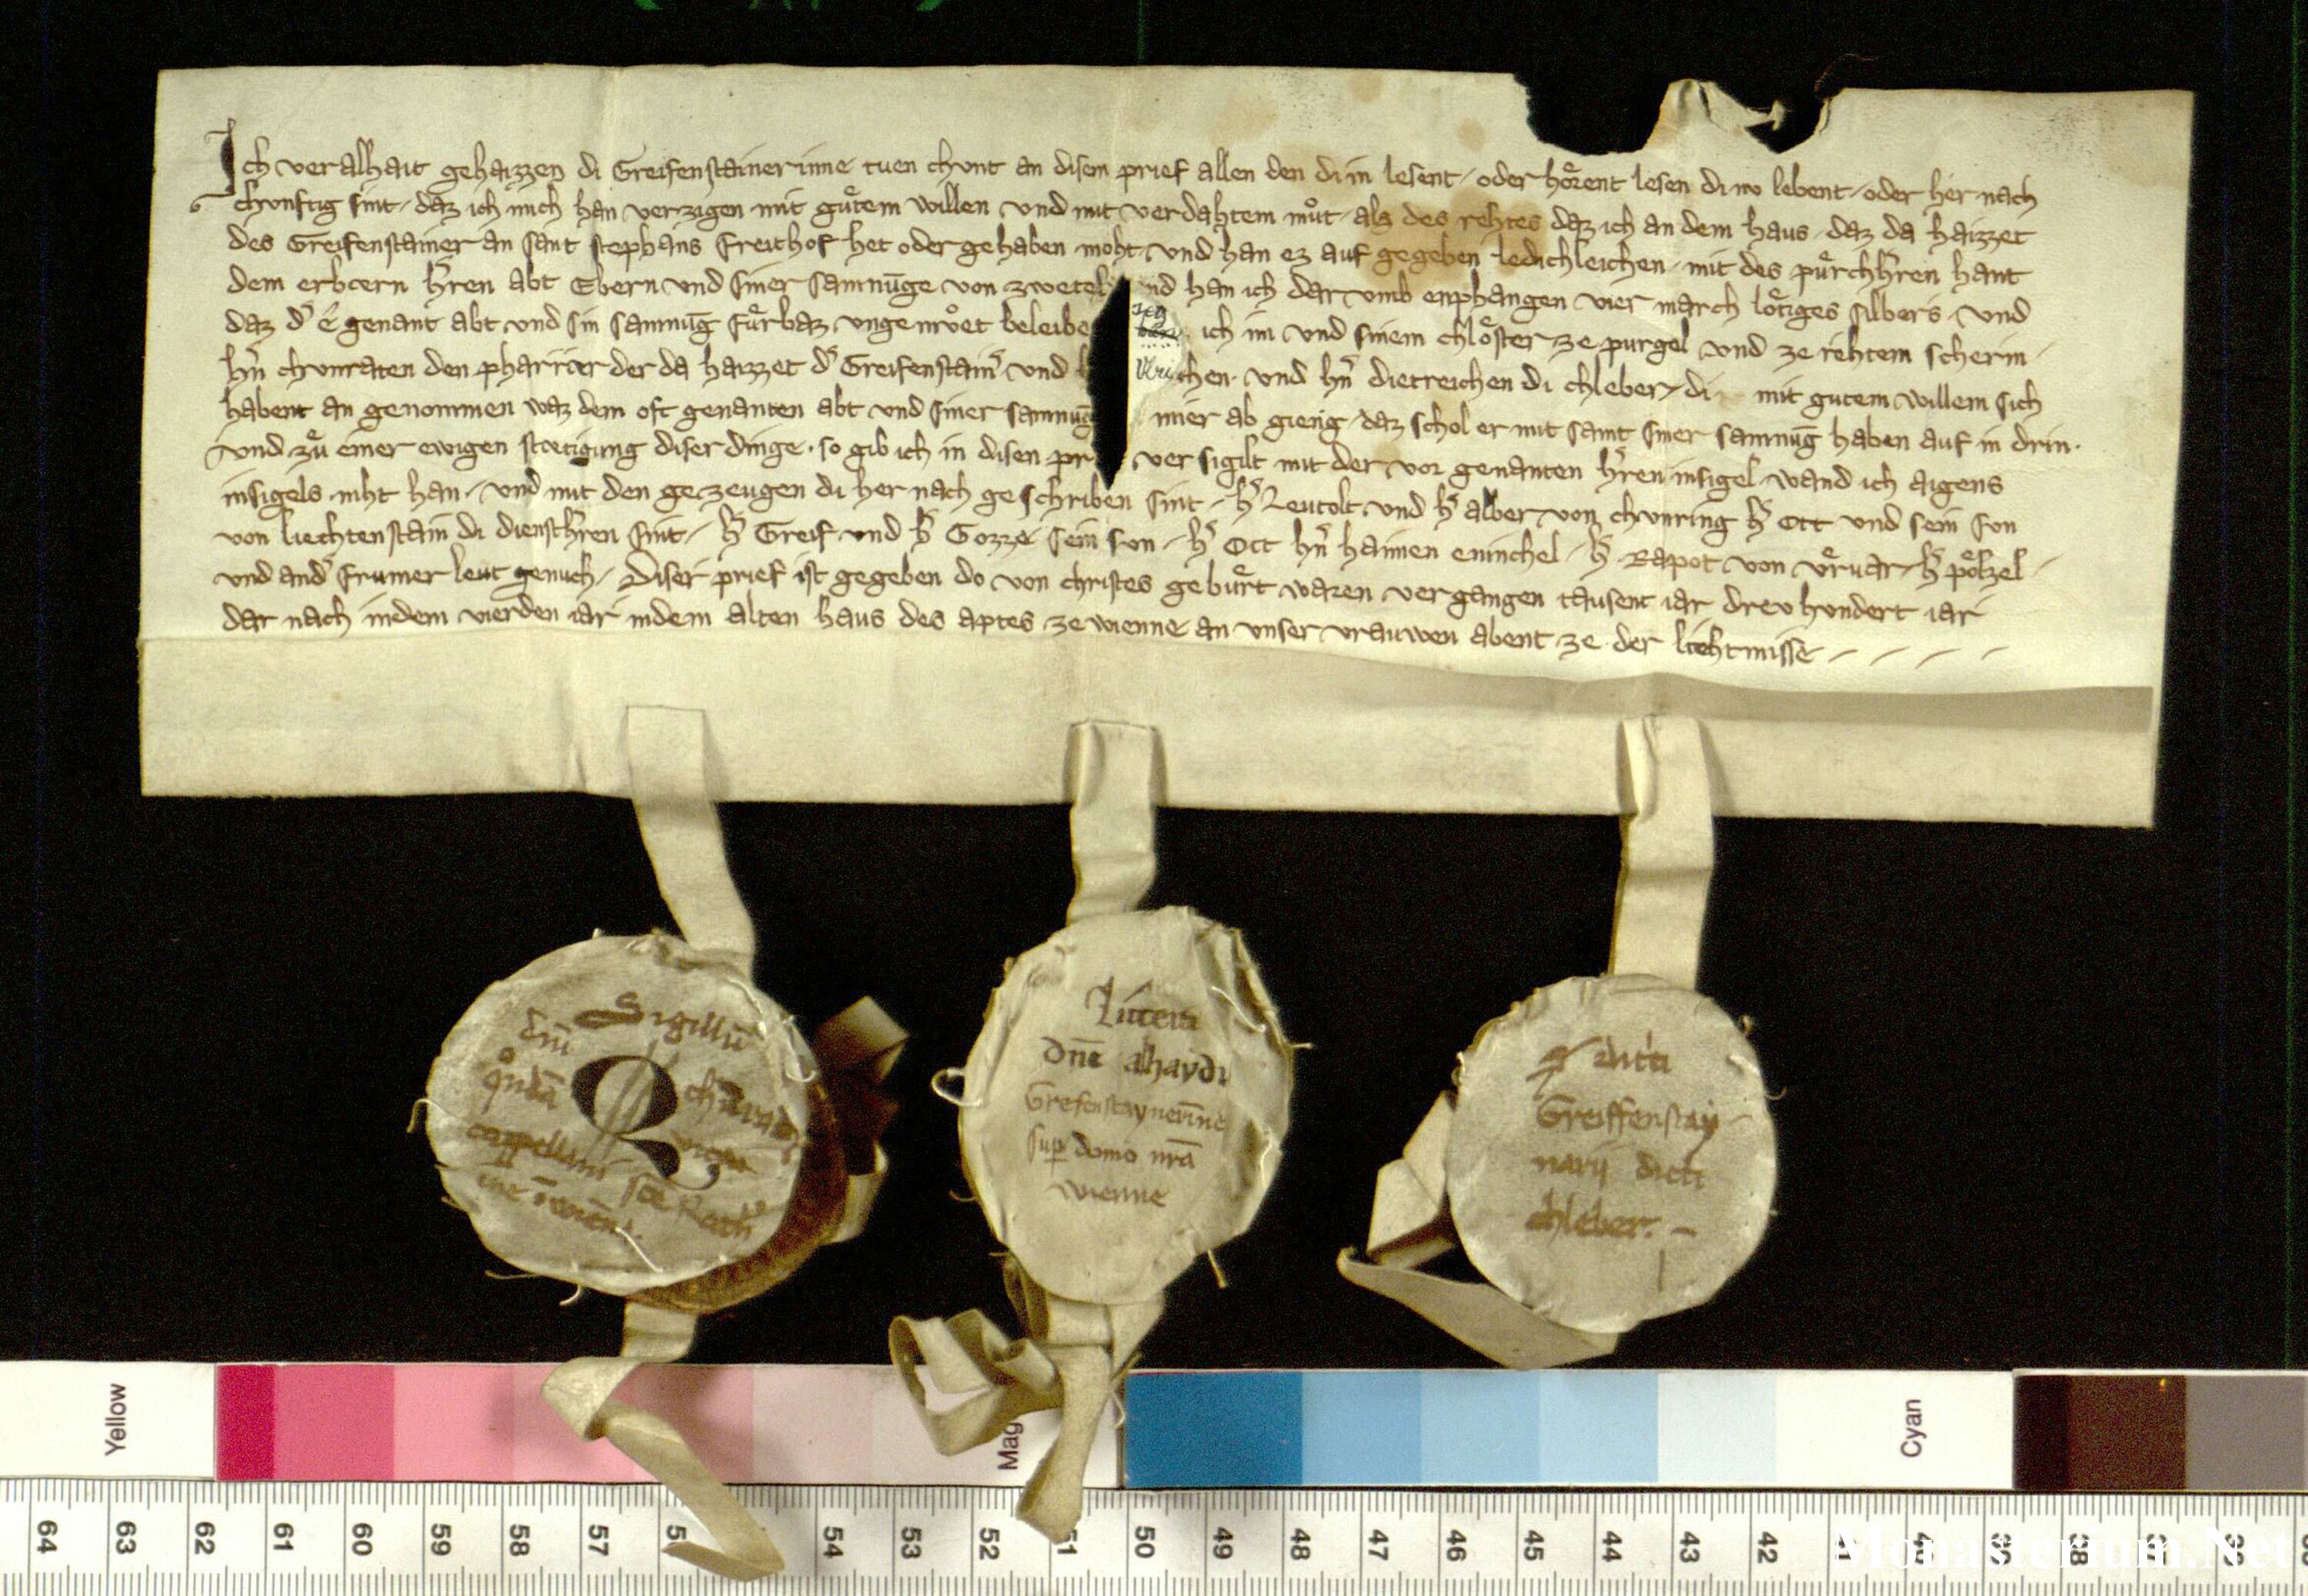 Ich ver alhait gehaizzen di Greifenstainerinne tuen chunt an disem prief allen den di in lesent oder hoͤrent lesen di nv lebent oder her nach
chvnftig sint daz ich mich han verzigen mit guͤtem willen vnd mit verdahtem muͦt als des rehtes daz ich an dem haus daz da haizzet
des Greifenstainer an sant stephans freithof het oder gehaben moht vnd han ez auf gegeben ledichleichen mit des puͤrchh̄ren hant
dem erbern h̄ren abt Ebern vnd siner samnūge von zwetel nd han ich dar vmb enphangen vier march loͤtiges silbers vnd
daz d͛ é genant abt vnd sin samnūg fuͤrbaz vngemvͦet beleibe ich im vnd sinem chloͤster ze purgel vnd ze rehtem scherm
h̄n chvnraten den pharrer der da haizzet d͛ Greifenstain͛ vnd Vlri chen vnd h̄n dietreichen di chleber di mit gutem willem sich
habent an genommen waz dem oft genanten abt vnd siner samnūg mier ab gieng daz schol er mit samt siner samnūg haben auf in drin
vnd zuͤ einer ewigen stetigung diser dinge so gib ich in disen pr ver sigilt mit der vor genanten h̄ren insigel wand ich aigens
insigels niht han vnd mit den gezeugen di her nach geschriben sint h͛ Leutolt vnd h͛ alber von chvnring h͛ Ott vnd sein svn
von liechtenstain di diensth̄ren sint h͛ Greif vnd h͛ Gozze sein svn h͛ Ott h̄n haimen eninchel h͛ Rapot von vͤruar h͛ poͤlzel
vnd and͛ frumer leut genuch Diser prief ist gegeben do von christes gebuͤrt waren vergangen tausent iar drev hvndert iar
dar nach indem vierden iar indem alten haus des aptes ze wienne an vnser vrauwen abent ze der liehtmisse
Sigillū
dn̄i
qͦndā chunradi
cappellani sce Kath͛
ine
Littera
dn̄e alhaydi
Grefenstaynerīne
sup domo nrā
wienne
dicti
Greiffenstay
narij dicti
chleber.
Yellow
Mag
Cyan
64 63 62 61 60 59 58 57 5 54 53 52 51 50 49 48 47 46 45 44 43 42 40 39 38
Monasterium.Net